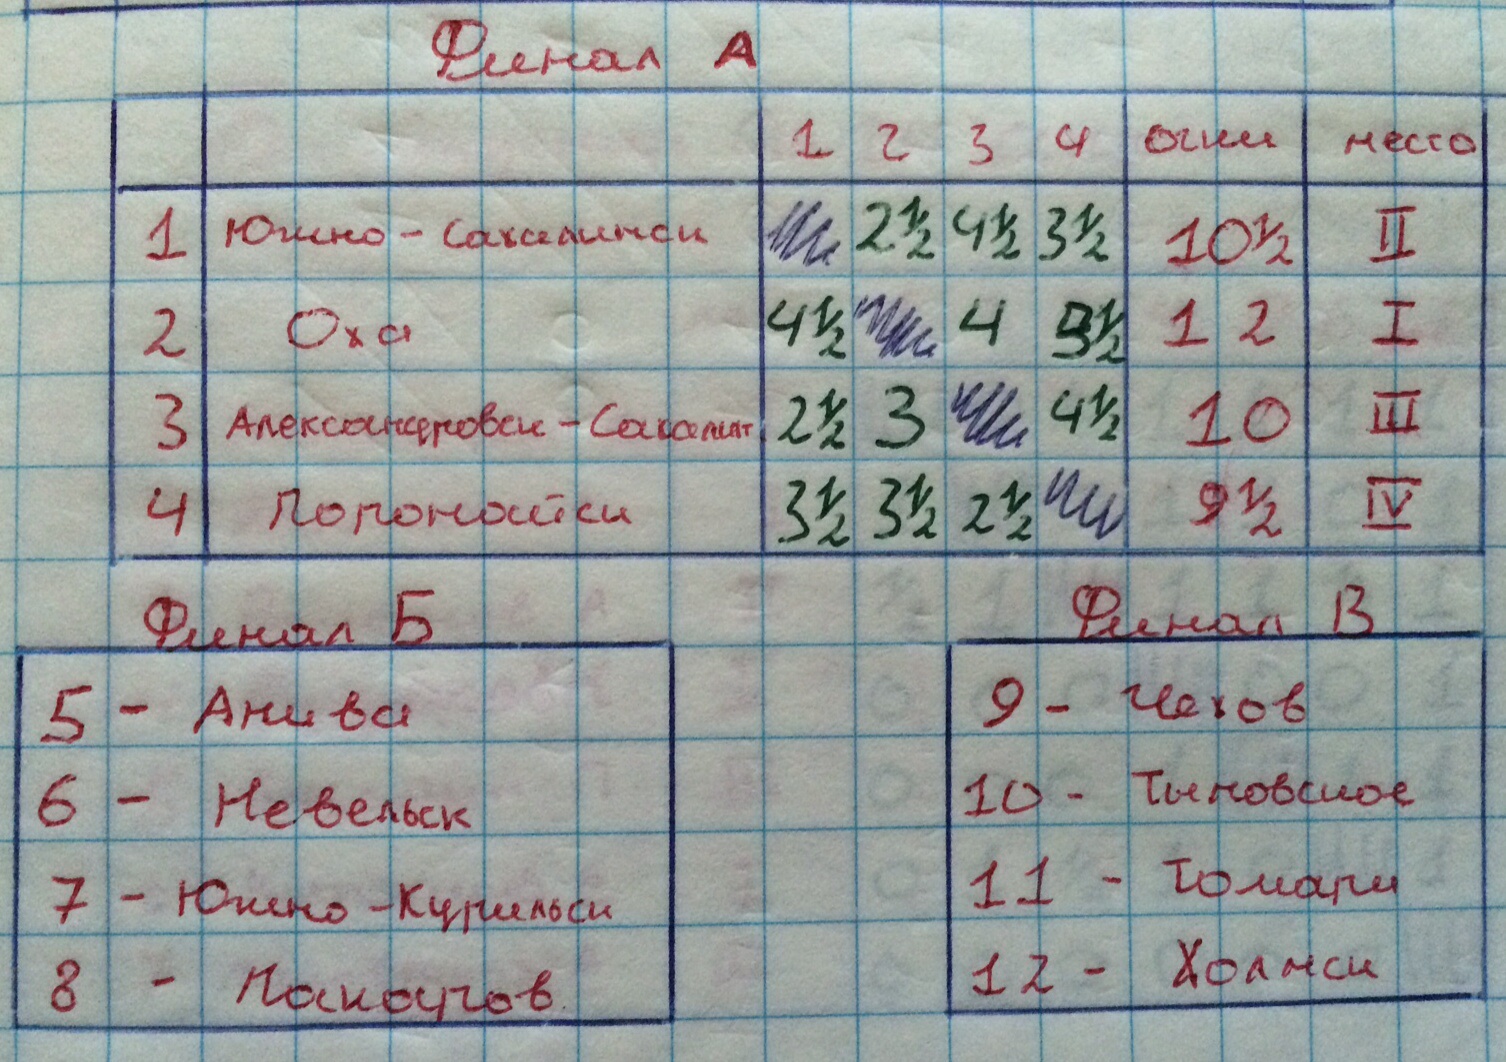 Финал А
1 2 3 4 очки место
1 Южно-Сахалинск 2½ 4½ 3½ 10½ II
2 Оха 4½ 4 3½ 12 I
3 Александровск-Сахалин 2½ 3 4½ 10 III
4 Поронайск 3½ 3½ 2½ 9½ IV
Финал Б
5 - Анива
6 - Невельск
7 - Южно-Курильск
8 - Макаров
Финал В
9 - Чехов
10 - Тымовское
11 - Томари
12 - Холмск